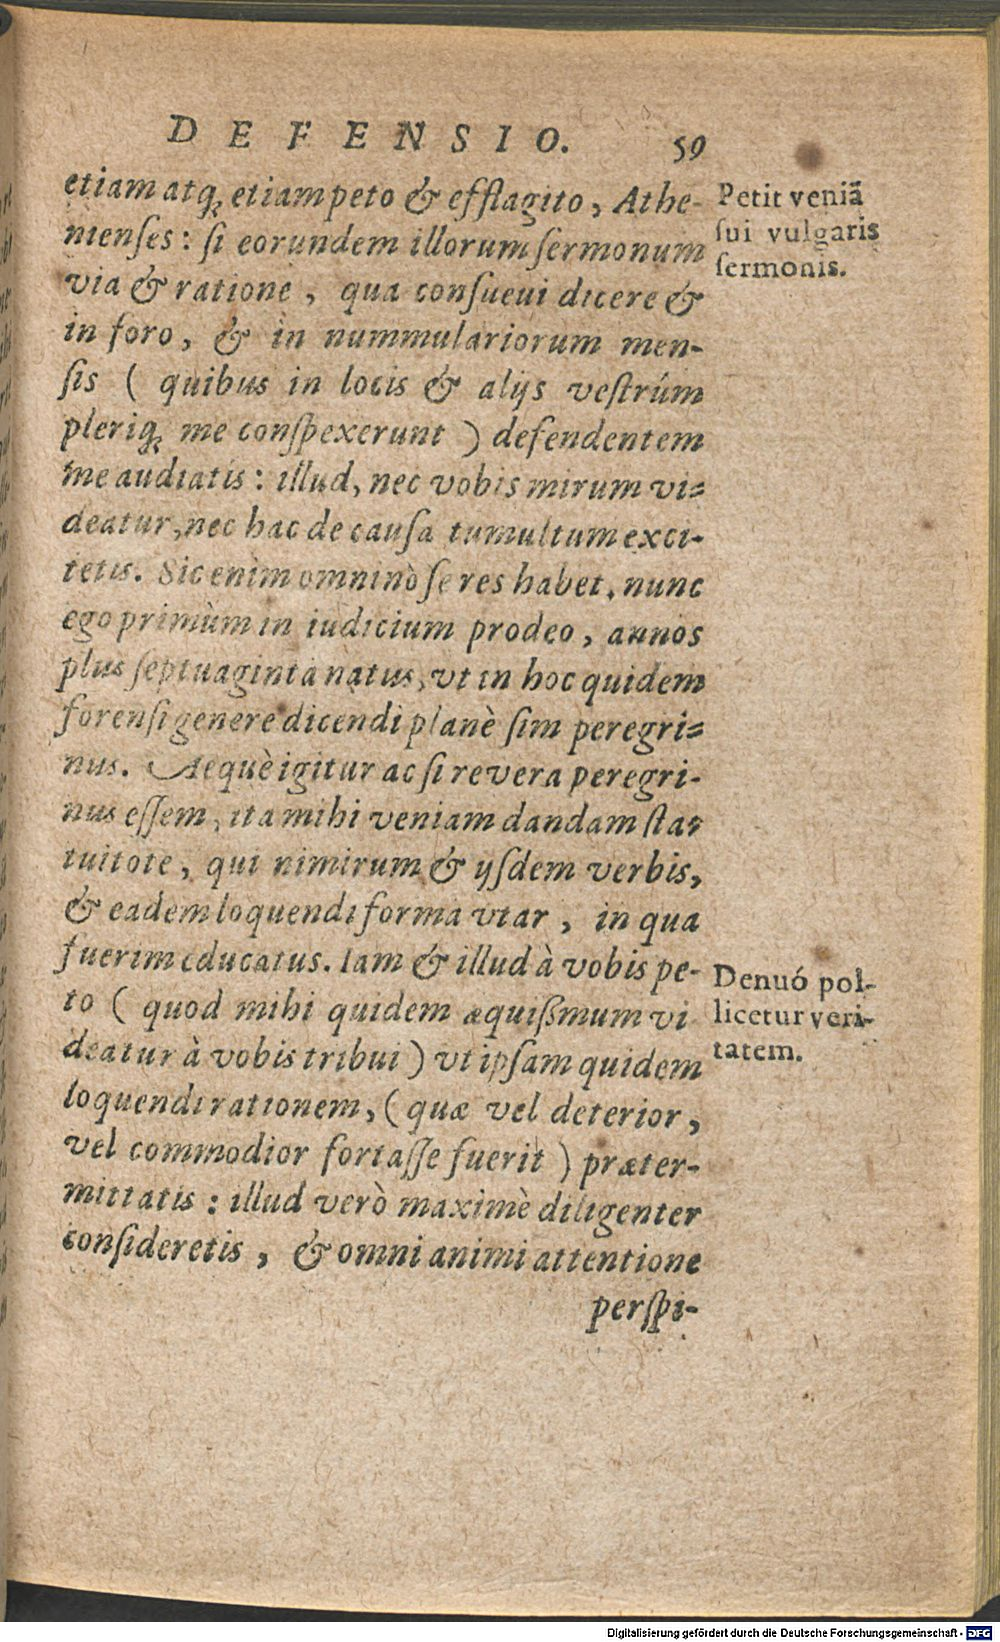 DEFENSIO. 59
etiam atq; etiam peto & efflagito, Athe-
nienses: si eorundem illorum sermonum
via & ratione, qua consueui dicere &
in foro, & in nummulariorum men-
sis ( quibus in locis & alijs vestrúm
pleriq; me conspexerunt ) defendentem
me audiatis: illud, nec vobis mirum vi-
deatur, nec hac de causa tumultum exci-
tetis. Sic enim omninò se res habet, nunc
ego primùm in iudicium prodeo, annos
plus septuaginta natus, vt in hoc quidem
forensi genere dicendi planè sim peregri-
nus. Aequè igitur ac si revera peregri-
nus essem, ita mihi veniam dandam sta-
tuitote, qui nimirum & ijsdem verbis,
& eadem loquendi forma vtar, in qua
fuerim educatus. Iam & illud à vobis pe-
to ( quod mihi quidem æquißmum vi
deatur à vobis tribui ) vt ipsam quidem
loquendi rationem, ( quæ vel deterior,
vel commodior fortasse fuerit ) præter-
mittatis: illud verò maximè diligenter
consideretis, & omni animi attentione
perspi-
Petit veniã
sui vulgaris
sermonis.
Denuó pol-
licetur veri-
tatem.
Digitalisierung gefördert durch die Deutsche Forschungsgemeinschaft - DFG